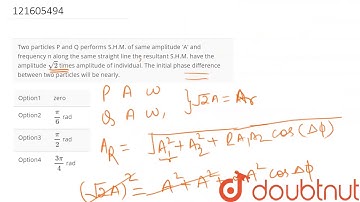 121605494
Two particles P and Q performs S.H.M. of same amplitude 'A' and
frequency n along the same straight line the resultant S.H.M. have the
amplitude √2 times amplitude of individual. The initial phase difference
between two particles will be nearly.
Option1 zero
Option2 π/6 rad
Option3 π/2 rad
Option4 3π/4 rad
P A ω
Q A ω, } √2A = A_R
A_R = √(A₁² + A₂² + 2A₁A₂ cos(Δφ))
(√2A)² = A² + A² + 2A² cos Δφ
doubtnut